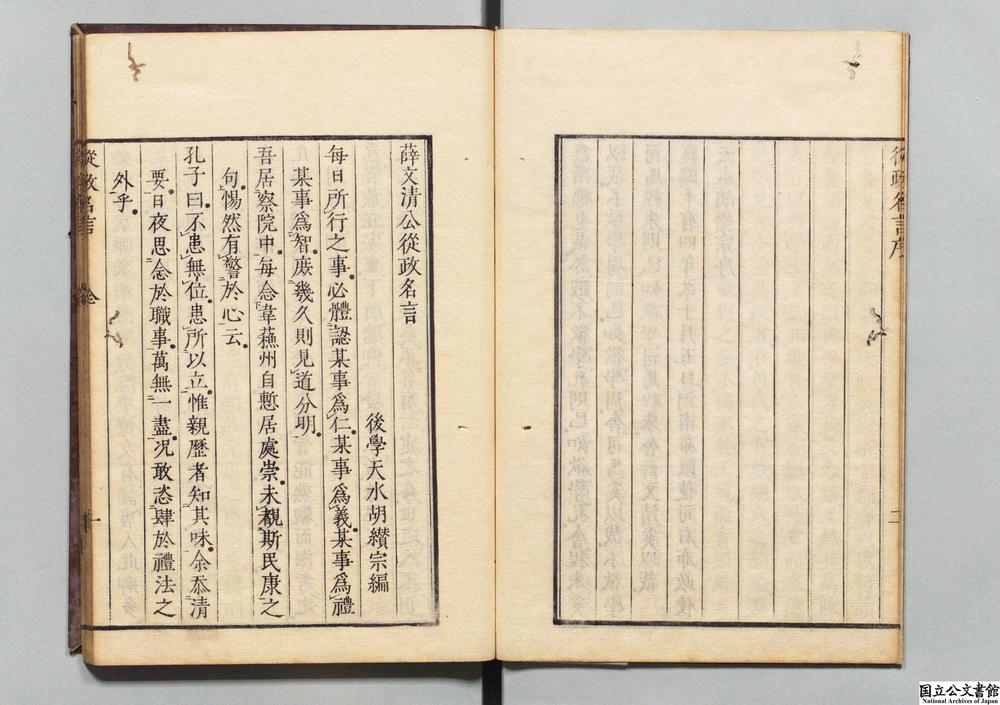 從政名言序
二
薛文清公從政名言
後學天水胡纉宗編
每日所行之事必體認某事爲仁某事爲義某事爲禮
某事爲智庻幾久則見道分明
吾居察院中每念韋蘇州自慙居處崇未覩斯民康之
句惕然有警於心云
孔子曰不患無位患所以立惟親歷者知其味余忝清
要日夜思念於職事萬無一盡况敢恣肆於禮法之
外乎
從政名言
全
一
国立公文書館
National Archives of Japan